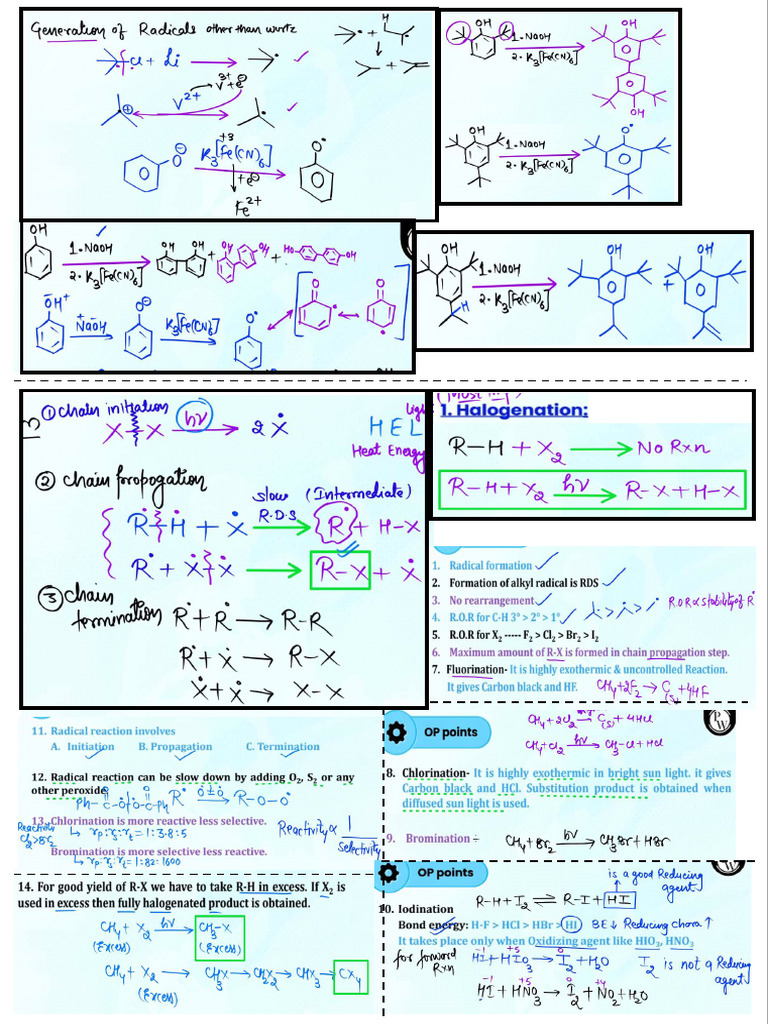 Generation of Radicals other than wurtz
Cl + Li
H
V2+ → V3+ + e⊖
K3[Fe(CN)6]
+3
+e⊖
Fe2+
OH
1. NaOH
2. K3[Fe(CN)6]
OH
OH
OH
1. NaOH
2. K3[Fe(CN)6]
O•
OH
1. NaOH
2. K3[Fe(CN)6]
OH OH + OH OH + HO OH
NaOH
K3[Fe(CN)6]
OH
1. NaOH
2. K3[Fe(CN)6]
H
OH
+
OH
① chain initiation
X–X hν → 2 Ẋ
HEL
Heat Energy
② chain propogation
slow (Intermediate)
R.D.S
R–H + Ẋ → Ṙ + H–X
Ṙ + X–X → R–X + Ẋ
③ chain termination
Ṙ + Ṙ → R–R
Ṙ + Ẋ → R–X
Ẋ + Ẋ → X–X
1. Halogenation:
R–H + X2 → No Rxn
R–H + X2 hν → R–X + H–X
1. Radical formation
2. Formation of alkyl radical is RDS
3. No rearrangement
R.O.R ∝ stability of Ṙ
4. R.O.R for C-H 3° > 2° > 1°
5. R.O.R for X2 ----- F2 > Cl2 > Br2 > I2
6. Maximum amount of R-X is formed in chain propagation step.
7. Fluorination- It is highly exothermic & uncontrolled Reaction.
It gives Carbon black and HF. CH4 + 2F2 → C(s) + 4HF
11. Radical reaction involves
A. Initiation B. Propagation C. Termination
12. Radical reaction can be slow down by adding O2, S2 or any
other peroxide
Ph–C–O–O–C–Ph Ṙ → R–O–O
13. Chlorination is more reactive less selective.
Reactivity Cl2 > Br2
↳ rp : rs : rt = 1 : 3.8 : 5
Reactivity ∝ 1 / selectivity
Bromination is more selective less reactive.
↳ rp : rs : rt = 1 : 82 : 1600
OP points
PW
CH4 + 2Cl2 → C(s) + 4HCl
CH4 + Cl2 hν → CH3–Cl + HCl
8. Chlorination- It is highly exothermic in bright sun light. it gives
Carbon black and HCl. Substitution product is obtained when
diffused sun light is used.
9. Bromination ÷ CH4 + Br2 hν → CH3Br + HBr
14. For good yield of R-X we have to take R-H in excess. If X2 is
used in excess then fully halogenated product is obtained.
CH4 + X2 hν → CH3–X
(Excess) (Excess)
CH4 + X2 → CH3X → CH2X2 → CHX3 → CX4
(Excess)
OP points
is a good Reducing agent
10. Iodination R–H + I2 ⇌ R–I + HI
Bond energy: H-F > HCl > HBr > HI BE ↓ Reducing chara ↑
It takes place only when Oxidizing agent like HIO3, HNO3
for forward Rxn
HI + HIO3 → I2 + H2O I2 is not a Reducing agent
HI + HNO3 → I2 + NO2 + H2O